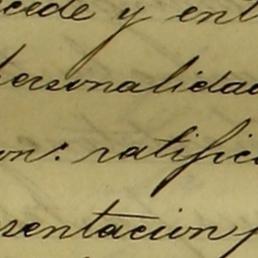 cede y ent
personalidad
on: ratific
sentacion p